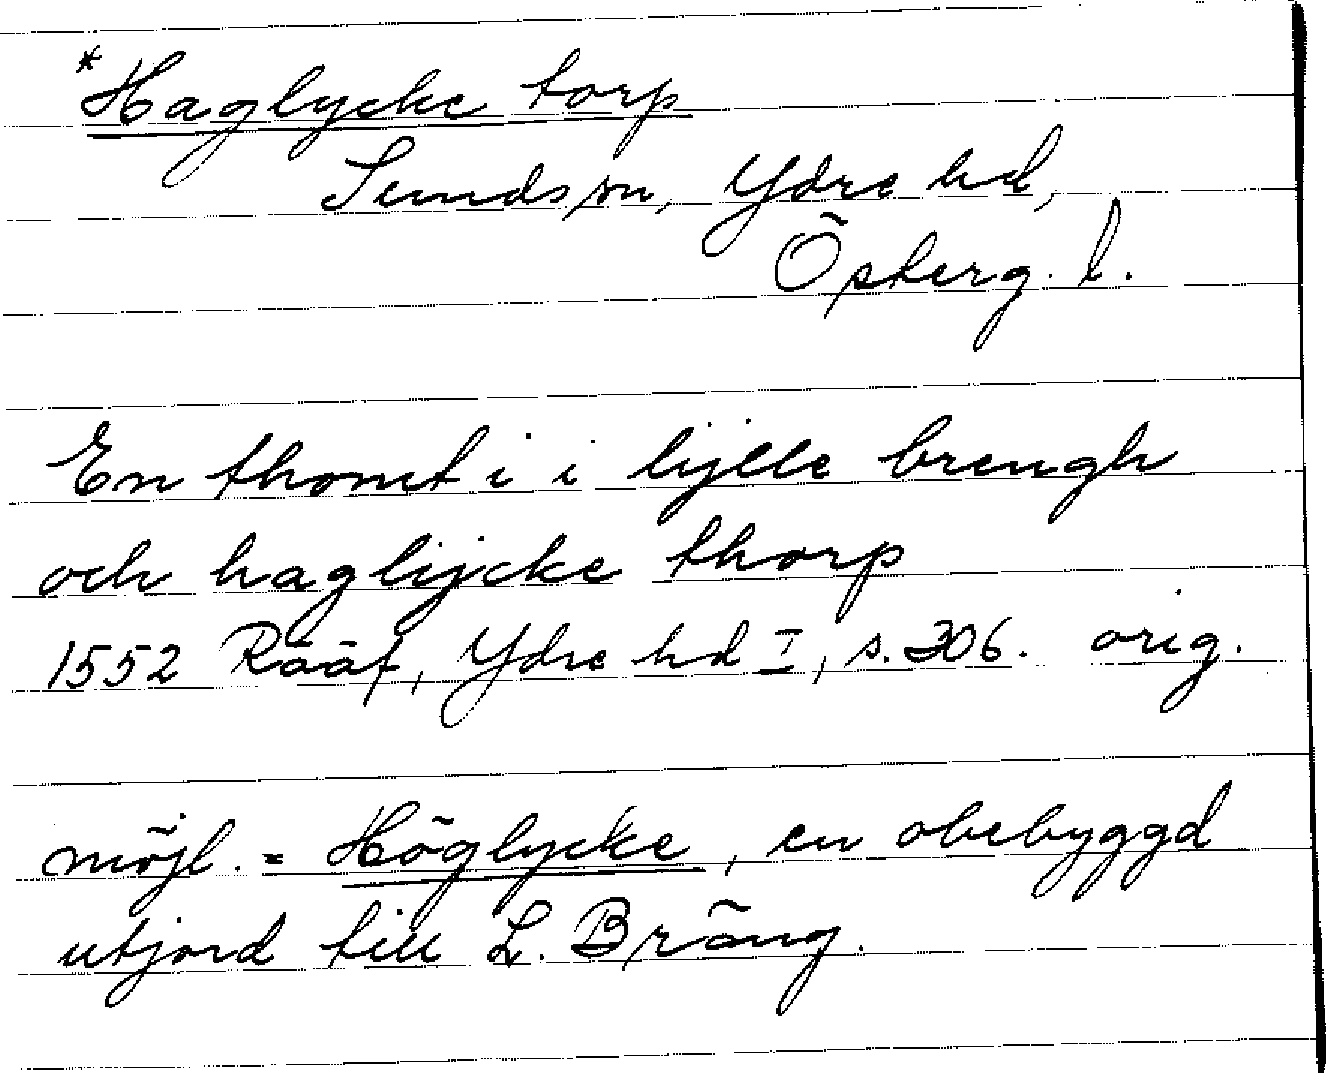 *Haglycke torp
Sunds sn, Ydre hd,
Östergː l.
En thomt i i lijlle brengh
och haglijcke thorp
1552 Rääf, Ydre hd I, s. 306. orig.
möjl. = Höglycke, en obebyggd
utjord till L. Bräng.